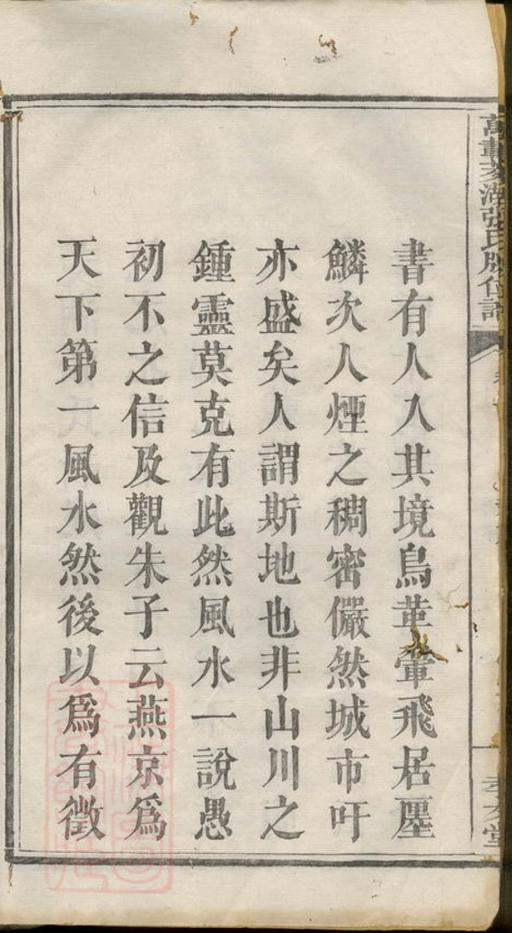 書有人入其境鳥革翬飛居廛
鱗次人煙之稠密儼然城市吁
亦盛矣人謂斯地也非山川之
鍾靈莫克有此然風水一說愚
初不之信及觀朱子云燕京爲
天下第一風水然後以爲有徵